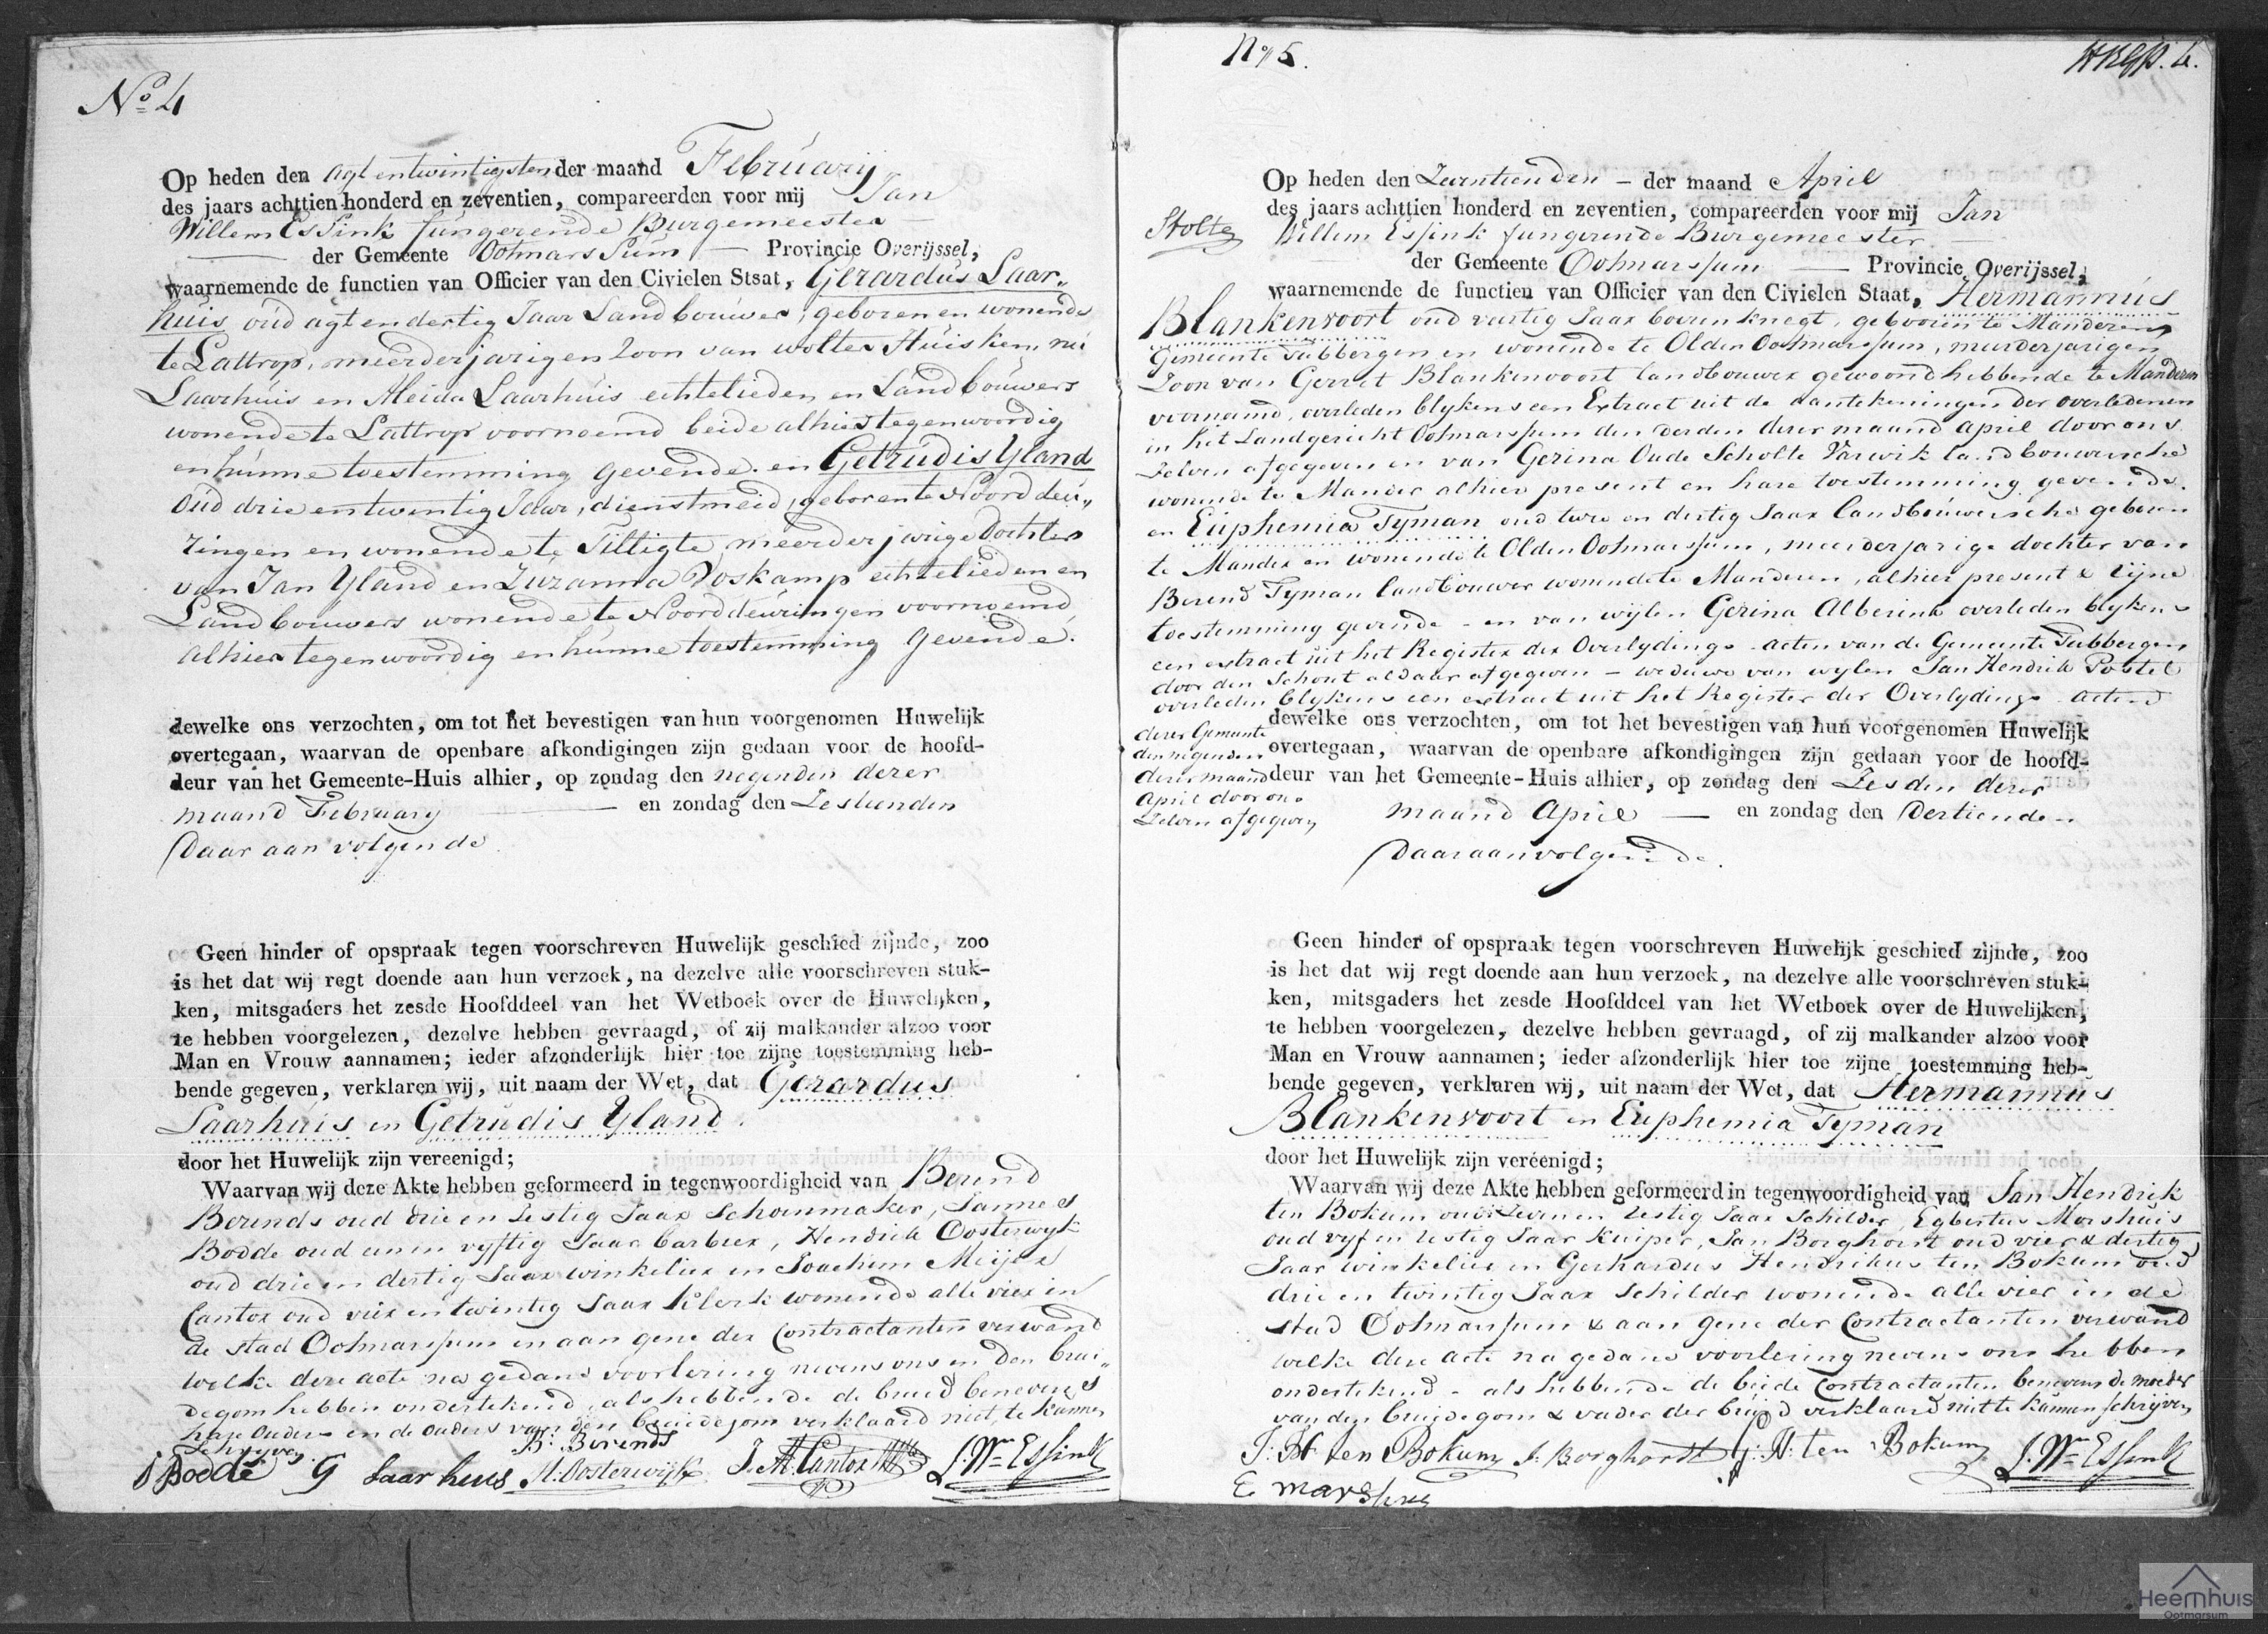 No 4
Op heden den agt en twintigsten der maand Februarij
des jaars achttien honderd en zeventien, compareerden voor mij Jan
Willem Essink fungerende Burgemeester
der Gemeente Ootmarssum Provincie Overijssel,
waarnemende de functien van Officier van den Civielen Staat, Gerardus Laar„
huis oud agt en dertig Jaar Landbouwer, geboren en wonende
te Lattrop, meerderjarigen Zoon van Wolter Huisken nu
Laarhuis en Aleida Laarhuis echtelieden en Landbouwers
wonende te Lattrop voornoemd beide alhier tegenwoordig
en hunne toestemming gevende. en Getrudis Yland
oud drie en twintig Jaar, dienstmeid, geboren te Noord deu„
ringen en wonende te Tiltigte meerderjarige Dochter
van Jan Yland en Zuzanna Voskamp echtelieden en
Landbouwers wonende te Noorddeuringen voornoemd
alhier tegenwoordig en hunne toestemming gevende.
dewelke ons verzochten, om tot het bevestigen van hun voorgenomen Huwelijk
overtegaan, waarvan de openbare afkondigingen zijn gedaan voor de hoofd-
deur van het Gemeente-Huis alhier, op zondag den negenden dezer
maand February en zondag den Zestienden
Daar aan volgende
Geen hinder of opspraak tegen voorschreven Huwelijk geschied zijnde, zoo
is het dat wij regt doende aan hun verzoek, na dezelve alle voorschreven stuk-
ken, mitsgaders het zesde Hoofddeel van het Wetboek over de Huwelijken,
te hebben voorgelezen, dezelve hebben gevraagd, of zij malkander alzoo voor
Man en Vrouw aannamen; ieder afzonderlijk hier toe zijne toestemming heb-
bende gegeven, verklaren wij, uit naam der Wet, dat Gerardus
Laarhuis en Getrudis Yland.
door het Huwelijk zijn vereenigd;
Waarvan wij deze Akte hebben geformeerd in tegenwoordigheid van Berend
Berends oud drie en zestig Jaar Schoenmaker, Jannes
Bodde oud een en vyftig Jaar barbier, Hendrik Oosterwyk
oud drie en dertig Jaar winkelier en Joachim Meijer
Cantor oud vier en twintig Jaar Klerk wonende alle vier in
de stad Ootmarssum en aan gene der Contractanten verwand
welke deze acte na gedane voorlezing nevens ons en den brui„
degom hebben ondertekend, als hebbende de bruid benevens
hare Ouders en de Ouders van den bruidegom verklaard niet te kunnen
Schryven.
B: Berends
J Bodde G Laarhuis H: Oosterwijk J. M. Cantor L. Wm Essink
No 5.
Op heden den Zeventienden - der maand April
des jaars achttien honderd en zeventien, compareerden voor mij Jan
Stolte Willem Essink fungerende Burgemeester
der Gemeente Ootmarssum Provincie Overijssel,
waarnemende de functien van Officier van den Civielen Staat, Hermannus
Blankenvoort oud veertig Jaar boerenknegt, gebooren te Manderen
Gemeente Tubbergen en wonende te Olden Ootmarssum, meerderjarigen
Zoon van Gerret Blankenvoort landbouwer gewoond hebbende te Manderen
voornaamd, overleden blykens een Extract uit de aantekeningen der overledenen
in het Landgericht Ootmarssum den derden dezer maand April door ons
Zelven afgegeven en van Gerina Oude Scholte Varwik landbouwersche
wonende te Mander alhier present en hare toestemming gevende.
en Euphemia Tyman oud twee en dertig Jaar landbouwersche geboren
te Mander en wonende te Olden Ootmarssum, meerderjarige dochter van
Berend Tyman landbouwer wonende te Manderen, alhier present & zijne
toestemming gevende - en van wijlen Gerina Alberink overleden blykens
een extract uit het Register der Overlydings-acten van de Gemeente Tubbergen
door den Schout aldaar afgegeven - weduwe van wylen Jan Hendrik Pottel
overleden blykens een extract uit het Register der Overlydings acten
dezer Gemeente
den negenden
dezer maand
April door ons
Zelven afgegeven
dewelke ons verzochten, om tot het bevestigen van hun voorgenomen Huwelijk
overtegaan, waarvan de openbare afkondigingen zijn gedaan voor de hoofd-
deur van het Gemeente-Huis alhier, op zondag den Zesden dezer
maand April en zondag den Dertienden
Daaraanvolgende.
Geen hinder of opspraak tegen voorschreven Huwelijk geschied zijnde, zoo
is het dat wij regt doende aan hun verzoek, na dezelve alle voorschreven stuk-
ken, mitsgaders het zesde Hoofddeel van het Wetboek over de Huwelijken,
te hebben voorgelezen, dezelve hebben gevraagd, of zij malkander alzoo voor
Man en Vrouw aannamen; ieder afzonderlijk hier toe zijne toestemming heb-
bende gegeven, verklaren wij, uit naam der Wet, dat Hermannus
Blankenvoort en Euphemia Tyman
door het Huwelijk zijn vereenigd;
Waarvan wij deze Akte hebben geformeerd in tegenwoordigheid van Jan Hendrik
ten Bokum oud zeven en zestig Jaar Schilder, Egbertus Morshuis
oud vyf en zestig Jaar Kuiper, Jan Borghorst oud vier & dertig
Jaar winkelier en Gerhardus Hendrikus ten Bokum oud
drie en twintig Jaar Schilder wonende alle vier in de
stad Ootmarssum & aan gene der Contractanten verwand
welke deze acte na gedane voorlezing nevens ons hebben
ondertekend - als hebbende de beide Contractanten benevens de moeder
van den bruidegom & vader der bruid verklaard niet te kunnen schryven
J: H ten Bokum J: Borghorst G: H: ten Bokum L. Wm Essink
E morshuis
Heemhuis
Ootmarsum